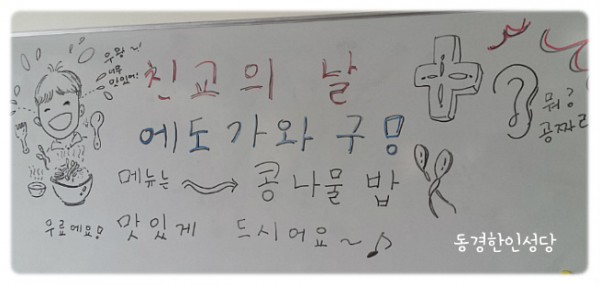 우왕~!
너무
맛있어!
친교의 날
에도가와 구 모
메뉴는 콩나물 밥
뭐?
공짜라
우료예요!
맛있게 드시어요~♪
동경한인성당